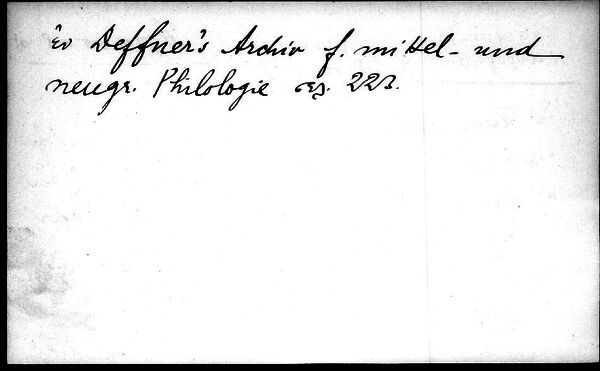 ἐν Deffner's Archiv f. mittel- und
neugr. Philologie σελ. 223.